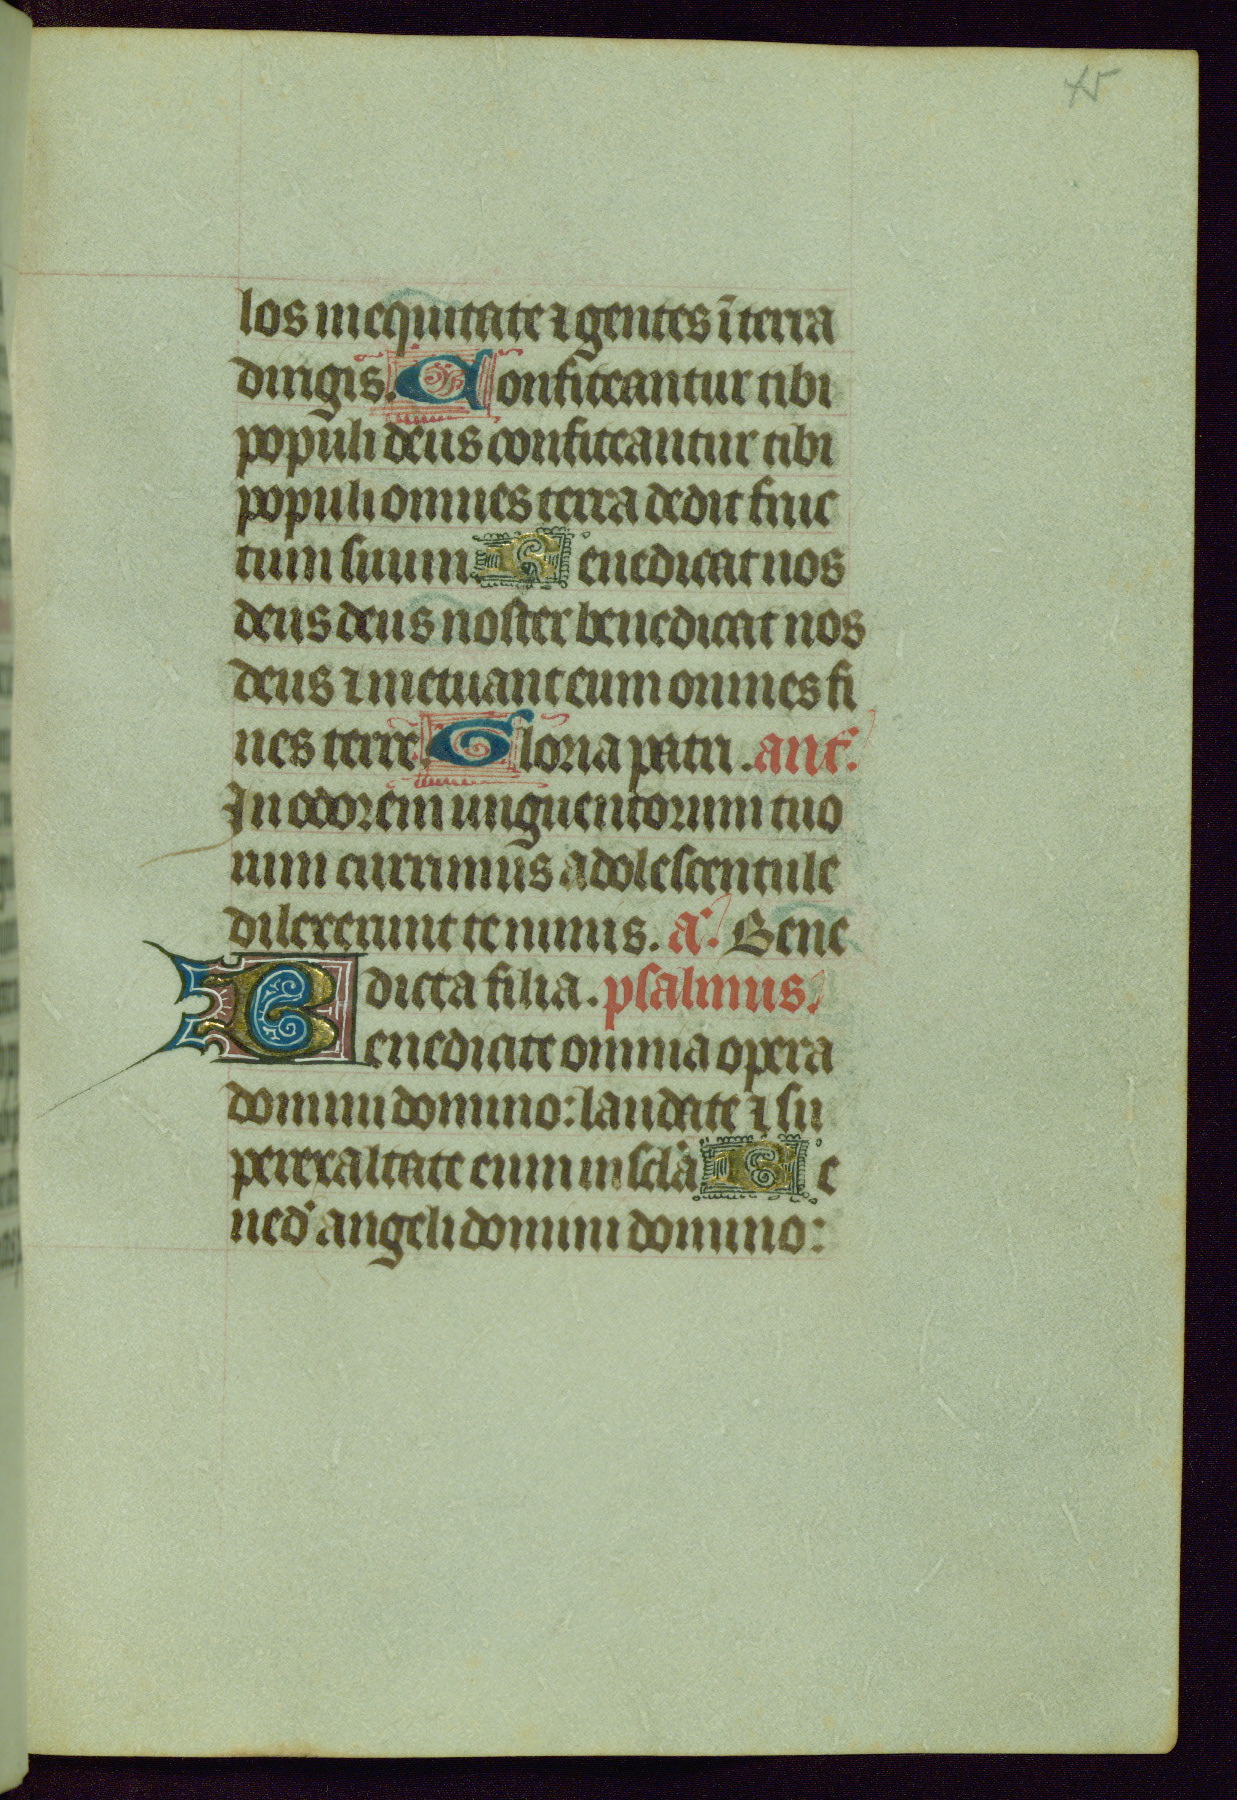 45
los in equitate ⁊ gentes ī terra
dirigis. Confiteantur tibi
populi deus confiteantur tibi
populi omnes terra dedit fruc
tum suum Benedicat nos
deus deus noster benedicat nos
deus ⁊ metuant eum omnes fi
nes terre. Gloria patri. ant̃.
In odorem unguentorum tuo
rum currimus adolescentule
dilexerunt te nimis. a͛. Bene
dicta filia. psalmus.
Benedicite omnia opera
domini domino: laudate ⁊ su
perexaltate eum in scl̃a Be
ned͛ angeli domini domino: